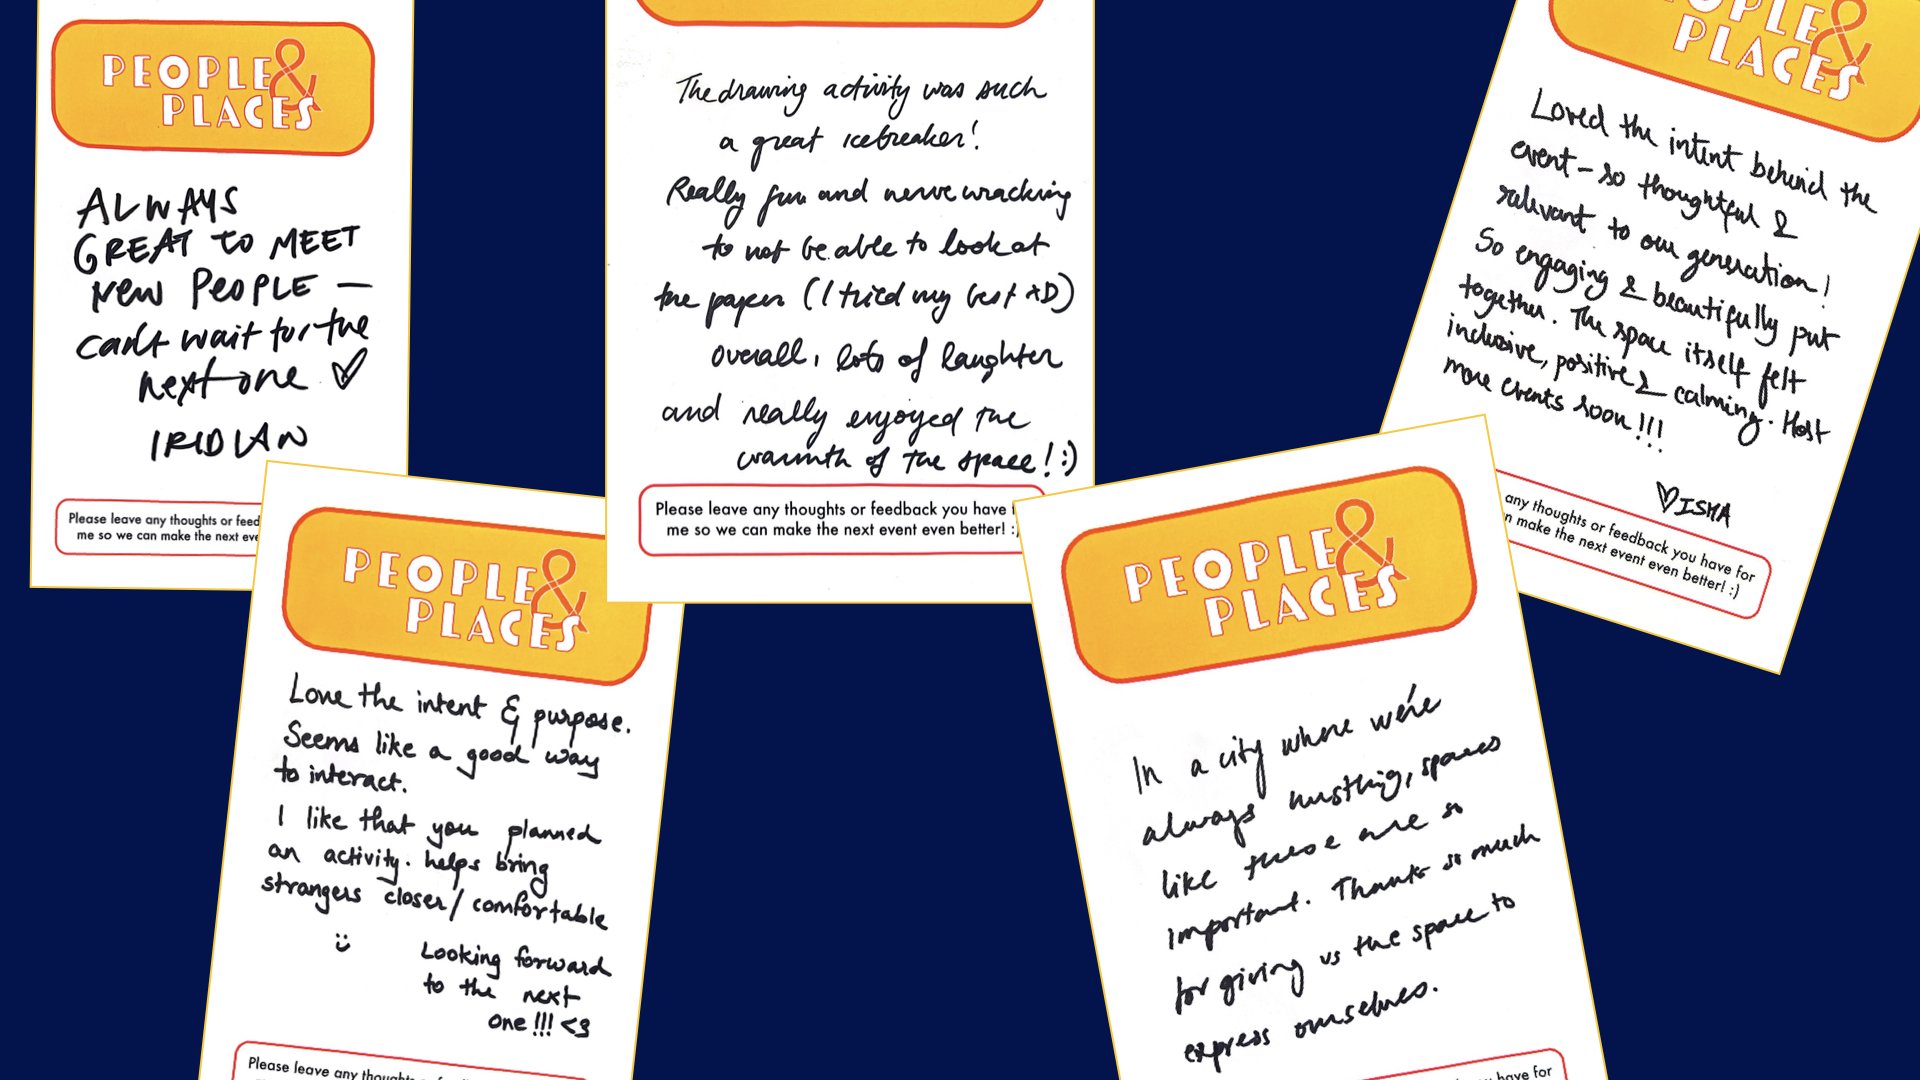 PEOPLE &
PLACES
ALWAYS
GREAT TO MEET
NEW PEOPLE —
can't wait for the
next one ♡
IRIDIAN
Please leave any thoughts or feed
me so we can make the next eve
The drawing activity was such
a great icebreaker!
Really fun and nervewracking
to not be able to look at
the paper (I tried my best XD)
overall, lots of laughter
and really enjoyed the
warmth of the space! :)
Please leave any thoughts or feedback you have
me so we can make the next event even better! :)
PEOPLE &
PLACES
Loved the intent behind the
event – so thoughtful &
relevant to our generation!
So engaging & beautifully put
together. The space itself felt
inclusive, positive & calming. Host
more events soon!!!
♡ISHA
any thoughts or feedback you have for
n make the next event even better! :)
PEOPLE &
PLACES
Love the intent & purpose.
Seems like a good way
to interact.
I like that you planned
an activity. helps bring
strangers closer/comfortable
:)
Looking forward
to the next
one!!! <3
Please leave any thoughts
PEOPLE &
PLACES
In a city where we're
always hustling, spaces
like these are so
important. Thanks so much
for giving us the space to
express ourselves.
you have for